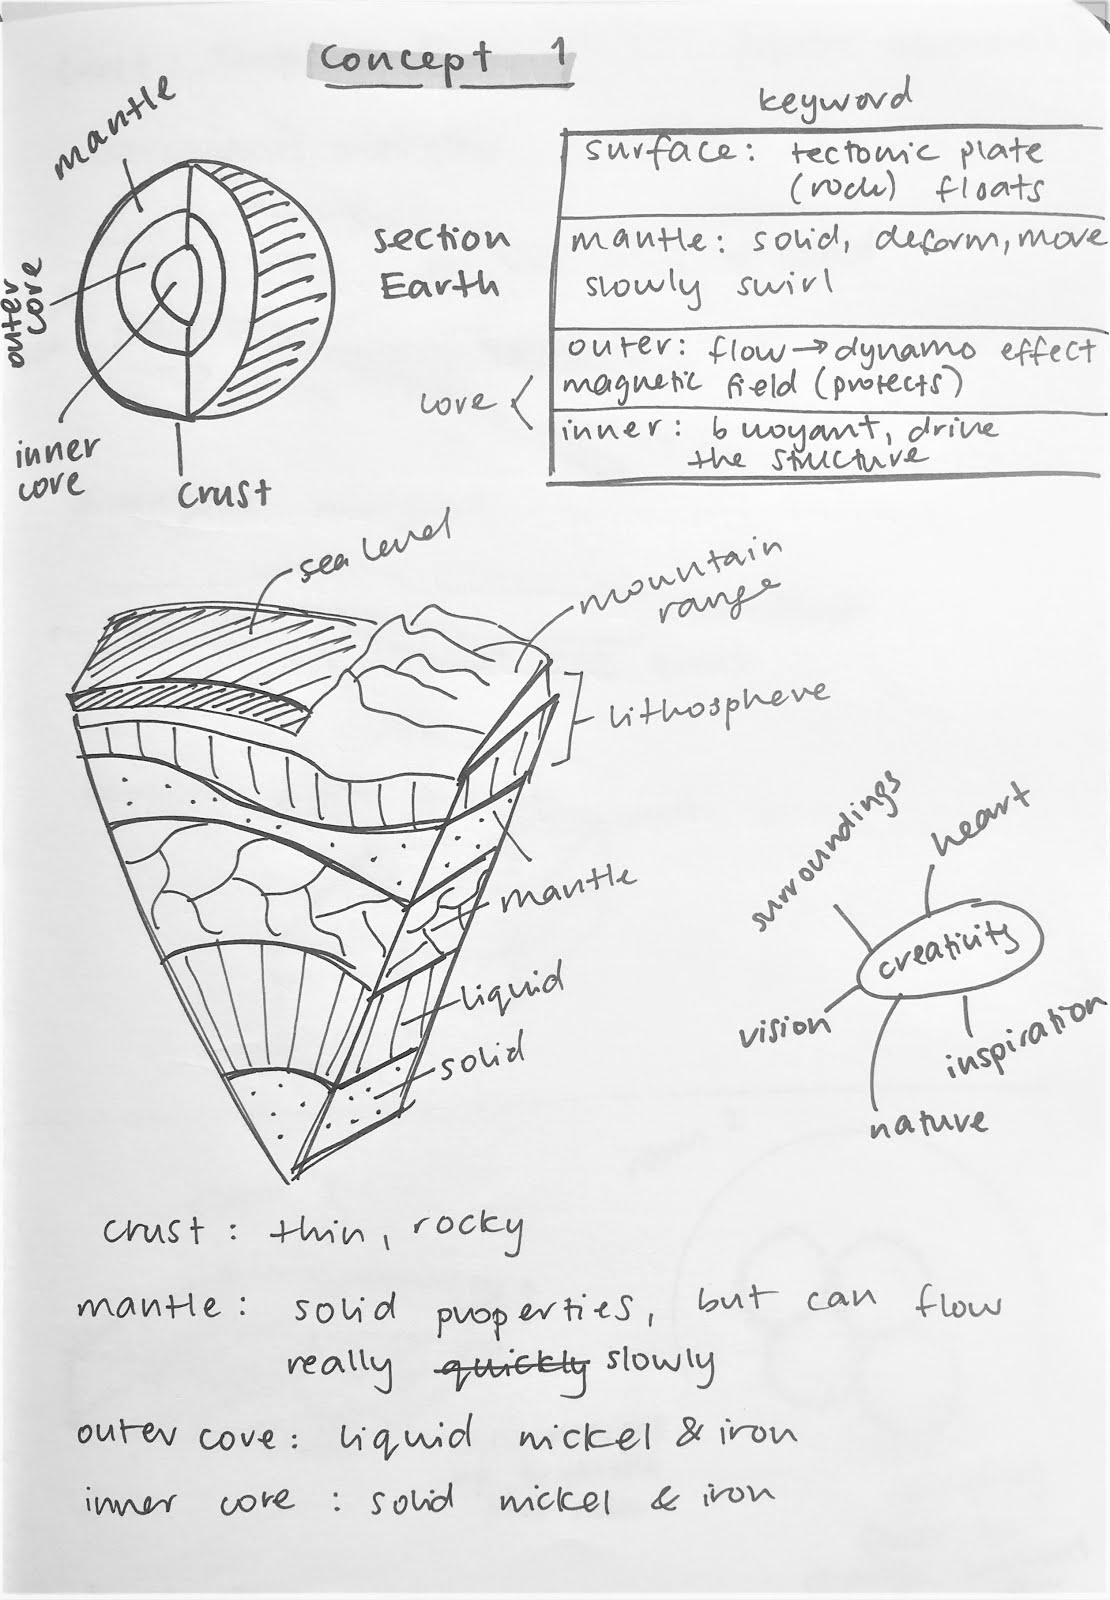 concept 1
mantle
outer
core
inner
core
crust
section
Earth
keyword
surface: tectonic plate
(rock) floats
mantle: solid, deform, move
slowly swirl
core
outer: flow → dynamo effect
magnetic field (protects)
inner: buoyant, drive
the structure
sea level
mountain
range
lithosphere
mantle
liquid
solid
surroundings
heart
creativity
vision
inspiration
nature
crust: thin, rocky
mantle: solid properties, but can flow
really quickly slowly
outer core: liquid nickel & iron
inner core: solid nickel & iron